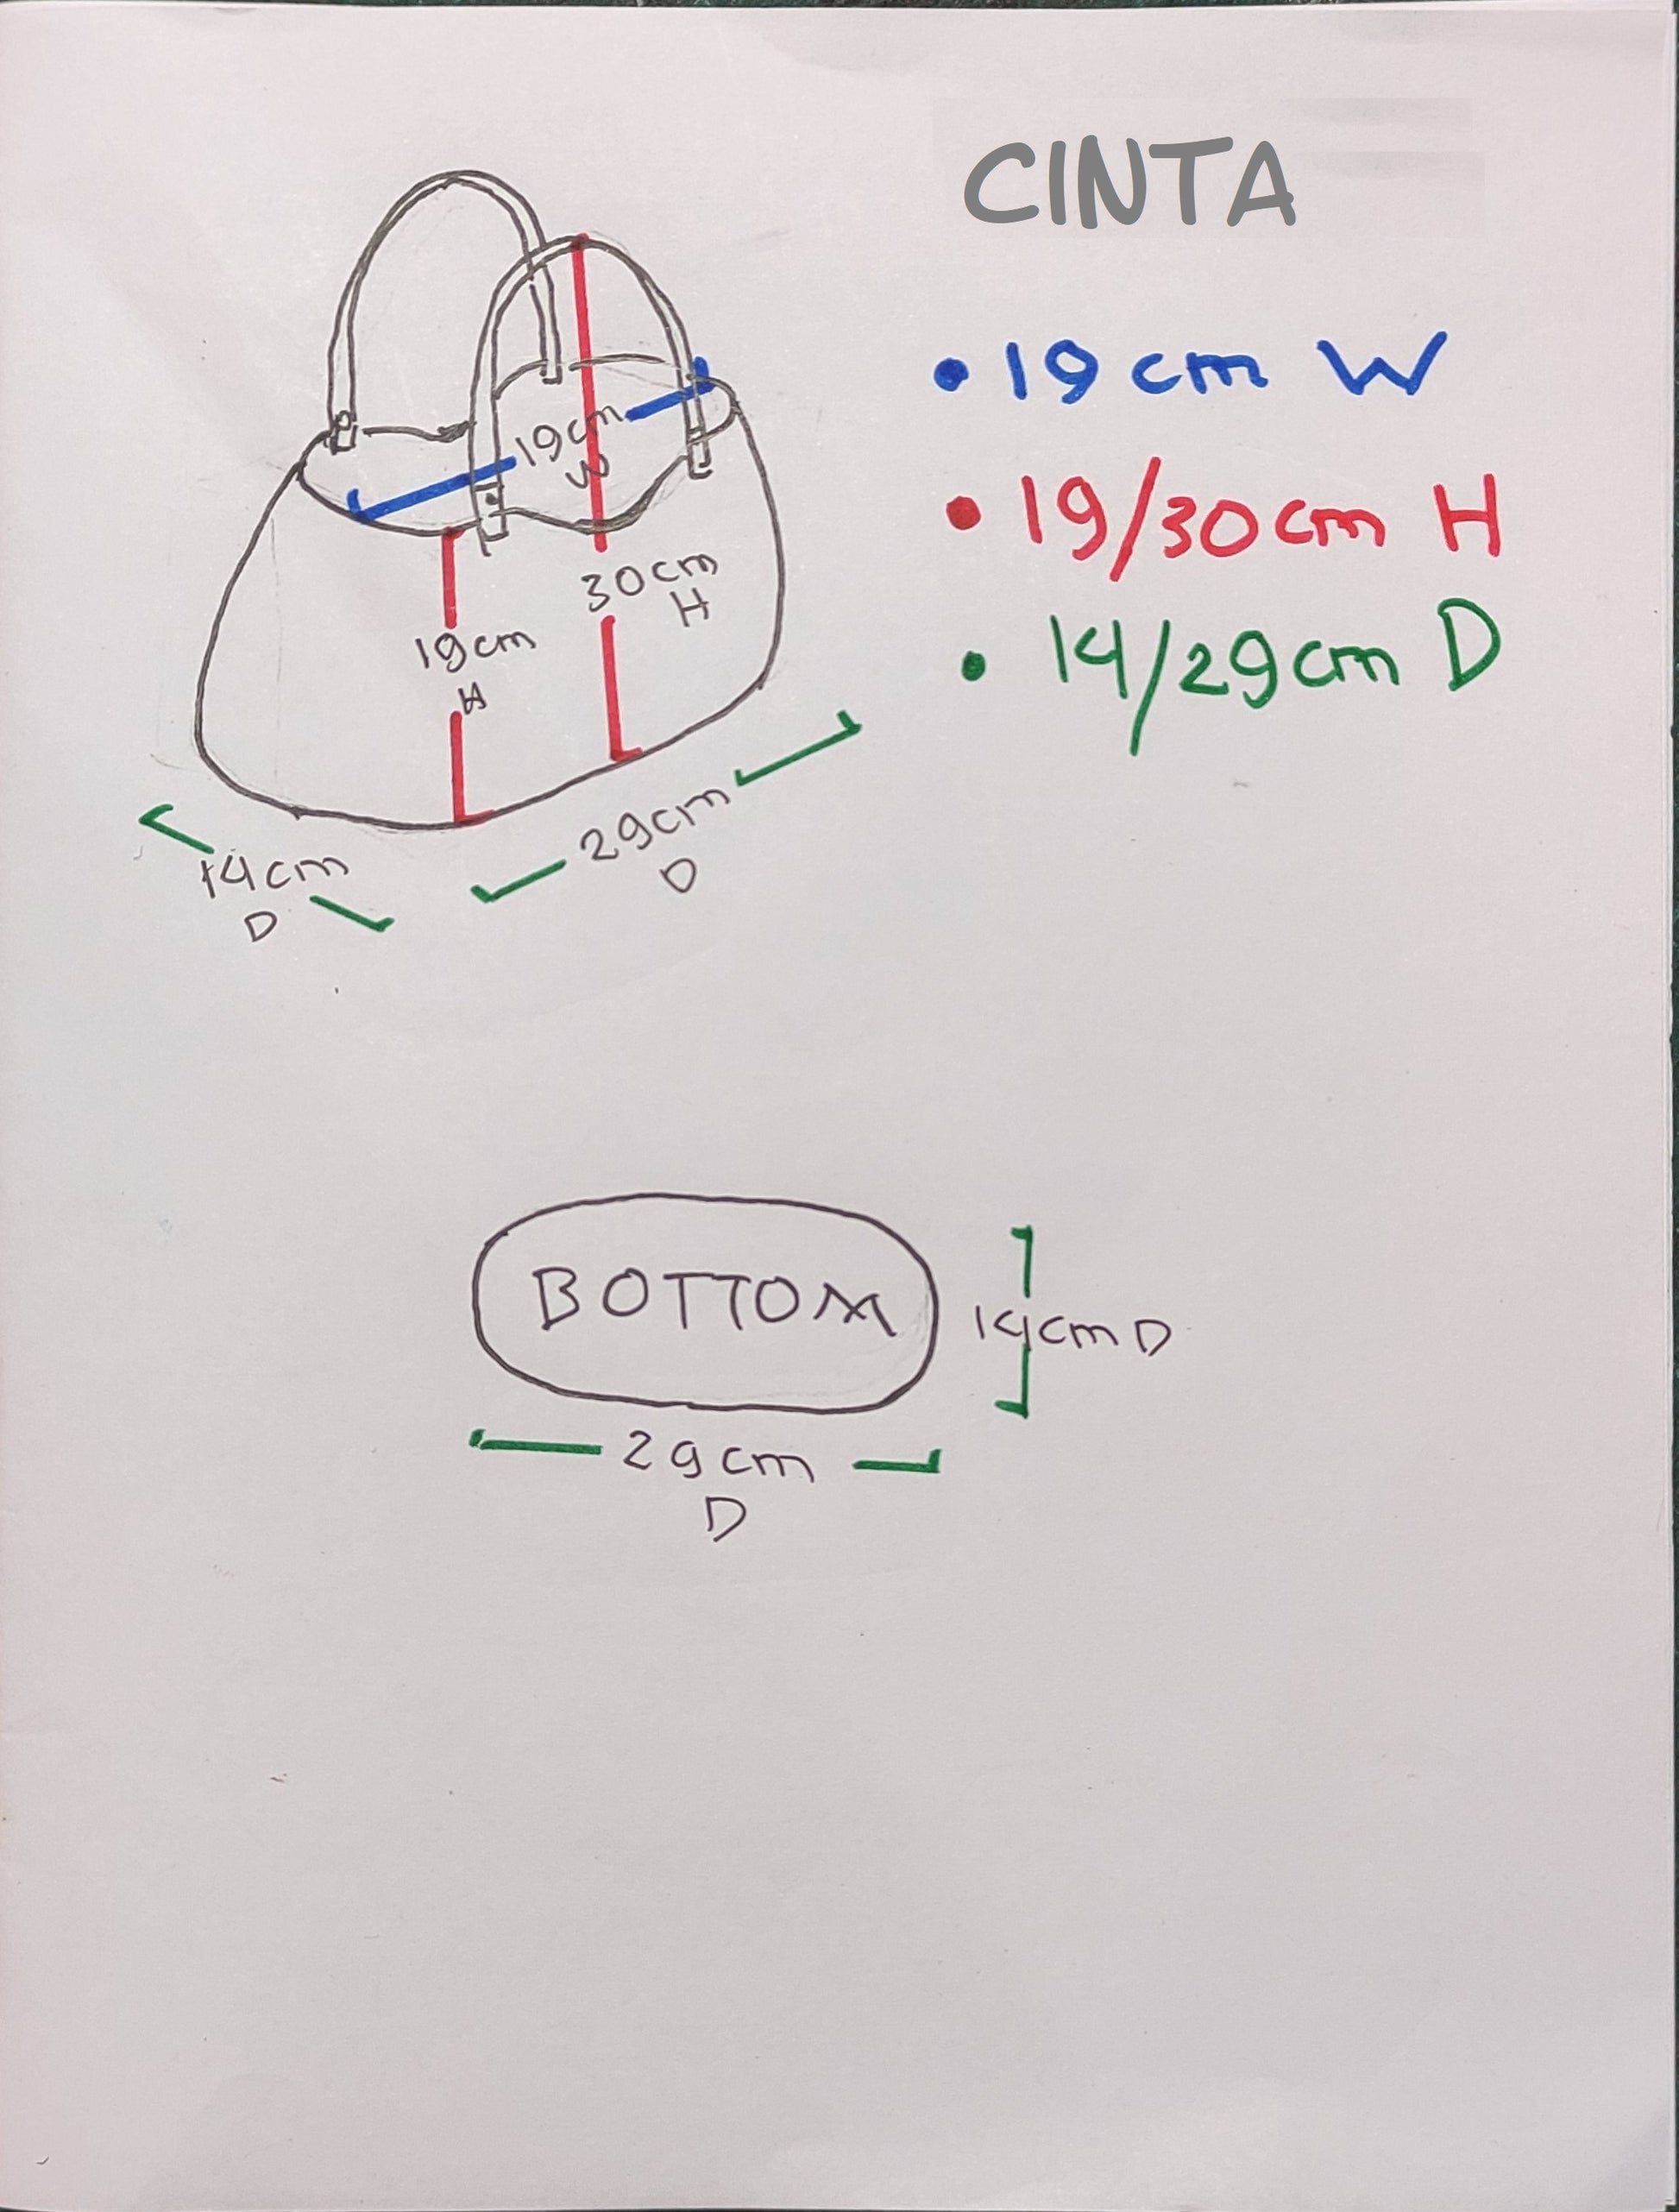 CINTA
• 19 cm W
• 19/30 cm H
• 14/29 cm D
19cm
W
30cm
H
19cm
H
29cm
D
14cm
D
BOTTOM
14cm D
29cm
D